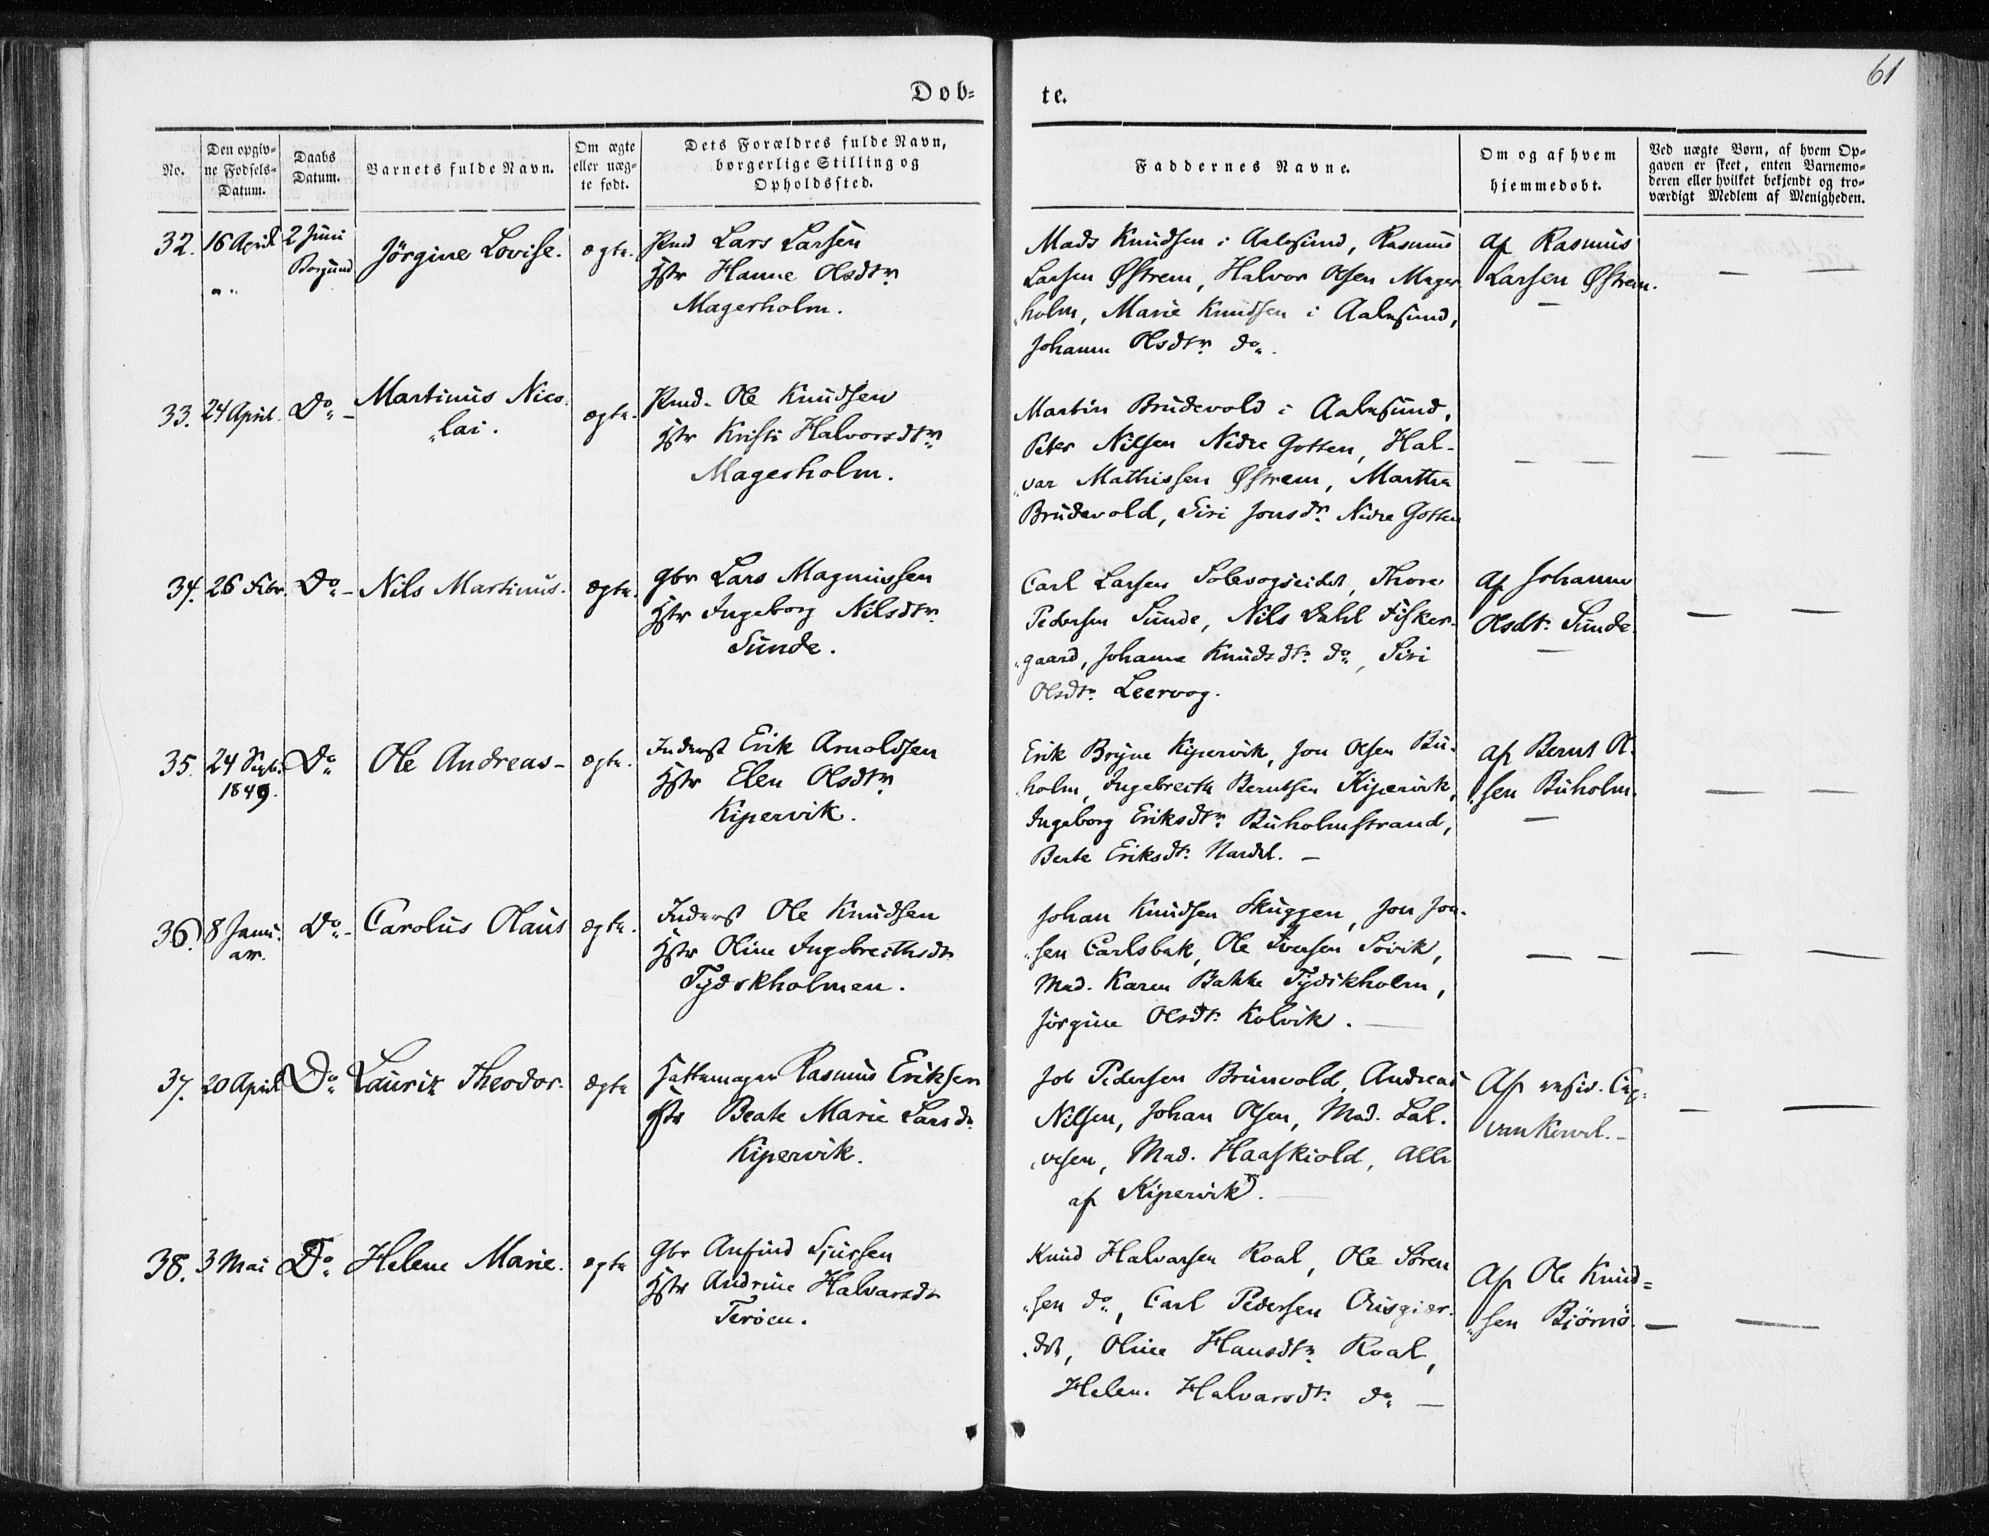 61
Døb-
te.
No.
Den opgiv-
ne Fødsels-
Datum.
Daabs
Datum.
Barnets fulde Navn.
Om ægte
eller uæg-
te født.
Dets Forældres fulde Navn,
borgerlige Stilling og
Opholdssted.
Faddernes Navne.
Om og af hvem
hjemmedøbt.
Ved uægte Børn, af hvem Op-
gaven er skeet, enten Barnemo-
deren eller hvilket bekjendt og tro-
værdigt Medlem af Menigheden.
32.
16 April
2 Juni
Borgund
Jörgine Lovise.
ægte.
Lars Larsen
Hstr Hanne Olsdtr
Magerholm.
Mads Knudsen i Aalesund, Rasmus
Larsen Østrem, Halvor Olsen Mager
holm, Marie Knudsen i Aalesund,
Johanne Olsdtr do.
Af Rasmus
Larsen Østrem.
33.
24 April.
Do -
Martinus Nico
lai.
ægte.
Ole Knudsen
Hstr Kristi Halvorsdtr
Magerholm.
Martin Brudevold i Aalesund,
Peter Nilsen Nedre Gotten, Hal-
var Mathissen Østrem, Martha
Brudevold, Siri Jonsdr Nedre Gotten
34.
26 Febr.
Do -
Nils Martinus.
ægte.
Gbr Lars Magnussen
Hstr Ingeborg Nilsdtr
Sunde.
Carl Larsen Solevogseidet, Thore
Pedersen Sunde, Nils Dahl Fisker-
gaard, Johanne Knudsdtr do, Siri
Olsdtr Leervog.
Af Johanne
Olsdtr Sunde
35.
24 Sept.
1849.
Do
Ole Andreas -
ægte.
Inderst Erik Arnoldsen
Hstr Elen Olsdtr
Kipervik.
Erik Boyne Kipervik, Jon Olsen Bu-
holm, Ingebreith Berntsen Kipervik,
Ingeborg Eriksdtr Buholmstrand,
Berte Eriksdtr
Af Bernt Ol
sen Buholm.
36.
8 Janu.
ar.
Do -
Carolus Olaus
ægte.
Inderst Ole Knudsen
Hstr Oline Ingebreithsdtr
Tydskholmen.
Johan Knudsen Skuggen, Jon Jon-
sen Carlsbak, Ole Iversen Sövik,
Mad. Karen Bakke Tydskholm,
Jörgine Olsdtr Kolvik.
37.
20 April
Do
Lauriz Theodor.
ægte
Hattemager Rasmus Eriksen
Hstr Beate Marie Larsdr
Kipervik.
Job Pedersen Brunvold, Andreas
Nilsen, Johan Olsen, Mad. Sal-
vesen, Mad. Haaskiold, Alle
af Kipervik.
Af resid. Cap.
38.
3 Mai
Do
Helene Marie.
ægte
Gbr Anfind Sjursen
Hstr Andrine Halvarsdr
Teröen.
Knud Halvarsen Roal, Ole Sören
sen do, Carl Pedersen Ousgier-
det, Oline Hansdtr Roal,
Helene Halvarsdtr do -
Af Ole Knud=
sen Björnö.